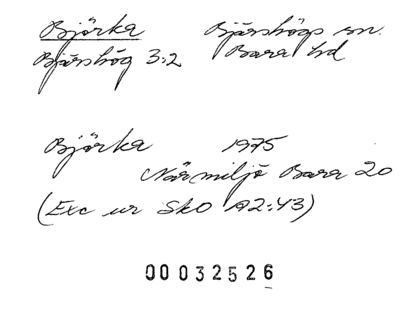 Björka Bjärshögs sn.
Bjärshög 3:2 Bara hd
Björka 1975
Närmiljö Bara 20
(Exc ur Sko A2:43)
0032526